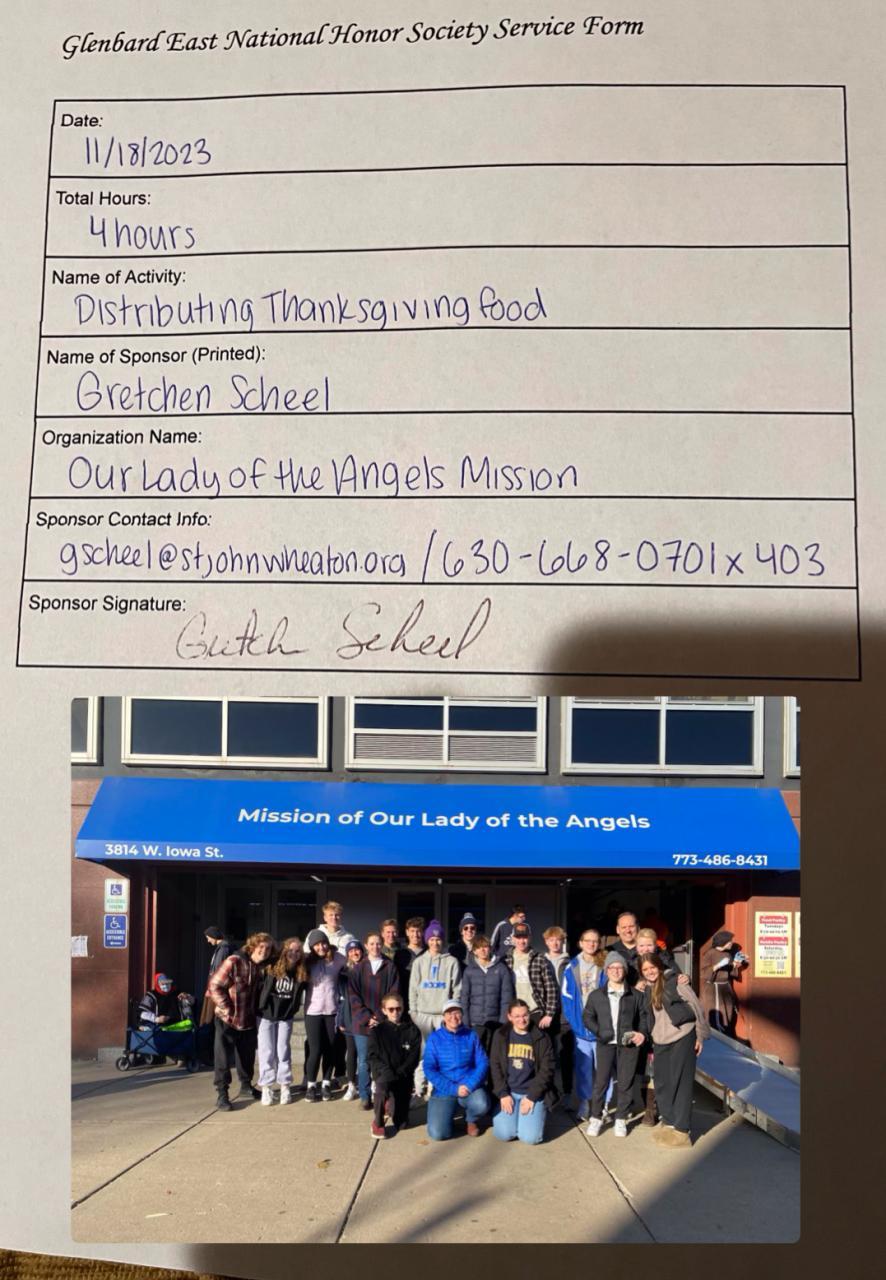 Glenbard East National Honor Society Service Form
Date:
11/18/2023
Total Hours:
4 hours
Name of Activity:
Distributing Thanksgiving food
Name of Sponsor (Printed):
Gretchen Scheel
Organization Name:
Our Lady of the Angels Mission
Sponsor Contact Info:
gscheel@stjohnwheaton.org / 630-668-0701 x 403
Sponsor Signature:
Gretch Scheel
Mission of Our Lady of the Angels
3814 W. Iowa St.
773-486-8431